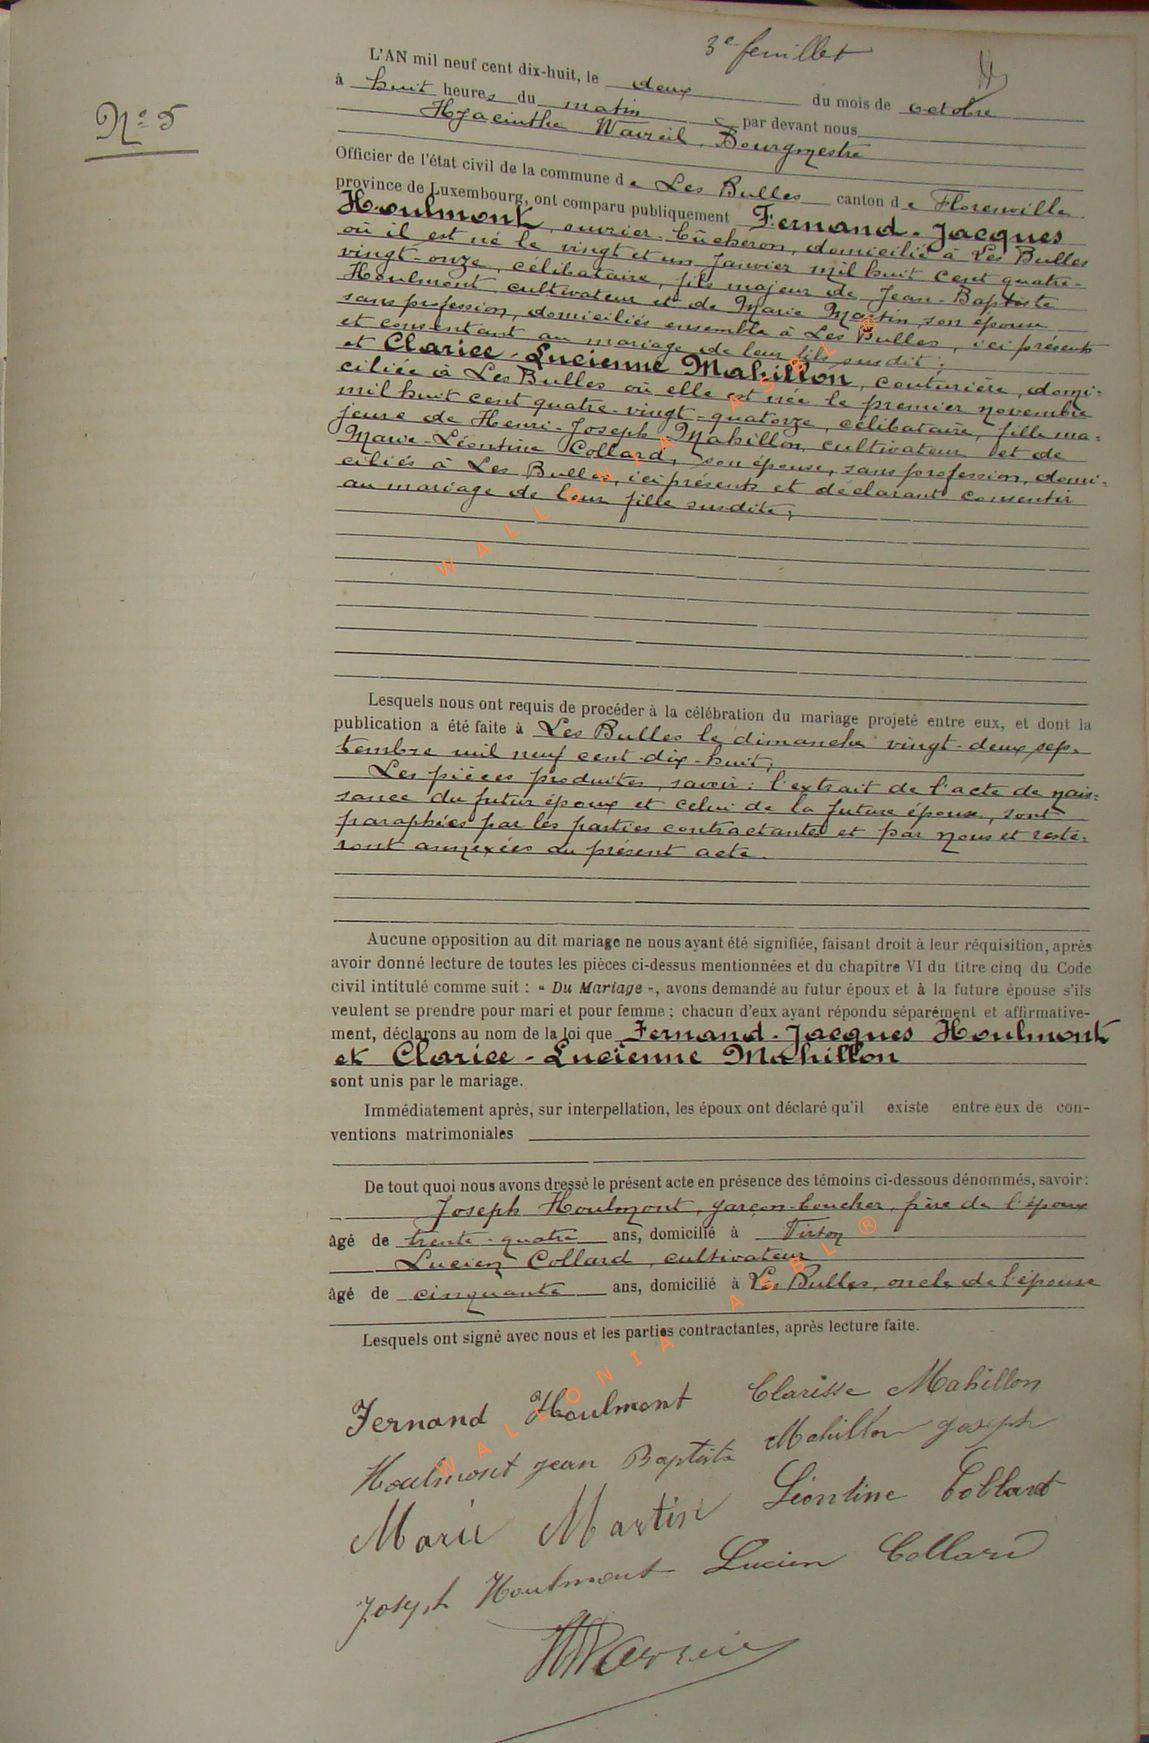 3e feuillet
N° 5
L'AN mil neuf cent dix-huit, le deux du mois de octobre
à huit heures du matin par devant nous
Hyacinthe Wavreil, Bourgmestre
Officier de l'état civil de la commune de Les Bulles canton de Florenville
province de Luxembourg, ont comparu publiquement Fernand-Jacques
Houlmont, ouvrier-bûcheron, domicilié à Les Bulles
où il est né le vingt et un janvier mil huit cent quatre-
vingt-onze, célibataire, fils majeur de Jean-Baptiste
Houlmont cultivateur et de Marie Martin son épouse
sans profession, domiciliés ensemble à Les Bulles, ici présents
et consentant au mariage de leur fils susdit;
et Clarice-Lucienne Mahillon, couturière, domi-
ciliée à Les Bulles où elle est née le premier novembre
mil huit cent quatre-vingt-quatorze, célibataire, fille ma-
jeure de Henri-Joseph Mahillon, cultivateur et de
Marie-Léontine Collard, son épouse, sans profession, domi-
ciliés à Les Bulles, ici présents et déclarant consentir
au mariage de leur fille susdite;
WALLONIA ASBL ®
Lesquels nous ont requis de procéder à la célébration du mariage projeté entre eux, et dont la
publication a été faite à Les Bulles le dimanche vingt-deux sep-
tembre mil neuf cent dix-huit;
Les pièces produites, savoir: l'extrait de l'acte de nais-
sance du futur époux et celui de la future épouse, sont
paraphées par les parties contractantes et par nous et reste-
ront annexées au présent acte.
Aucune opposition au dit mariage ne nous ayant été signifiée, faisant droit à leur réquisition, après
avoir donné lecture de toutes les pièces ci-dessus mentionnées et du chapitre VI du titre cinq du Code
civil intitulé comme suit : « Du Mariage », avons demandé au futur époux et à la future épouse s'ils
veulent se prendre pour mari et pour femme ; chacun d'eux ayant répondu séparément et affirmative-
ment, déclarons au nom de la loi que Fernand-Jacques Houlmont
et Clarice-Lucienne Mahillon
sont unis par le mariage.
Immédiatement après, sur interpellation, les époux ont déclaré qu'il existe entre eux de con-
ventions matrimoniales
De tout quoi nous avons dressé le présent acte en présence des témoins ci-dessous dénommés, savoir:
Joseph Houlmont, garçon-boucher, frère de l'époux
âgé de trente-quatre ans, domicilié à Virton
Lucien Collard, cultivateur
âgé de cinquante ans, domicilié à Les Bulles, oncle de l'épouse
Lesquels ont signé avec nous et les parties contractantes, après lecture faite.
WALLONIA ASBL ®
Fernand Houlmont Clarisse Mahillon
Houlmont jean Baptiste Mahillon joseph
Marie Martin Léontine Collard
Joseph Houlmont Lucien Collard
HWavreil